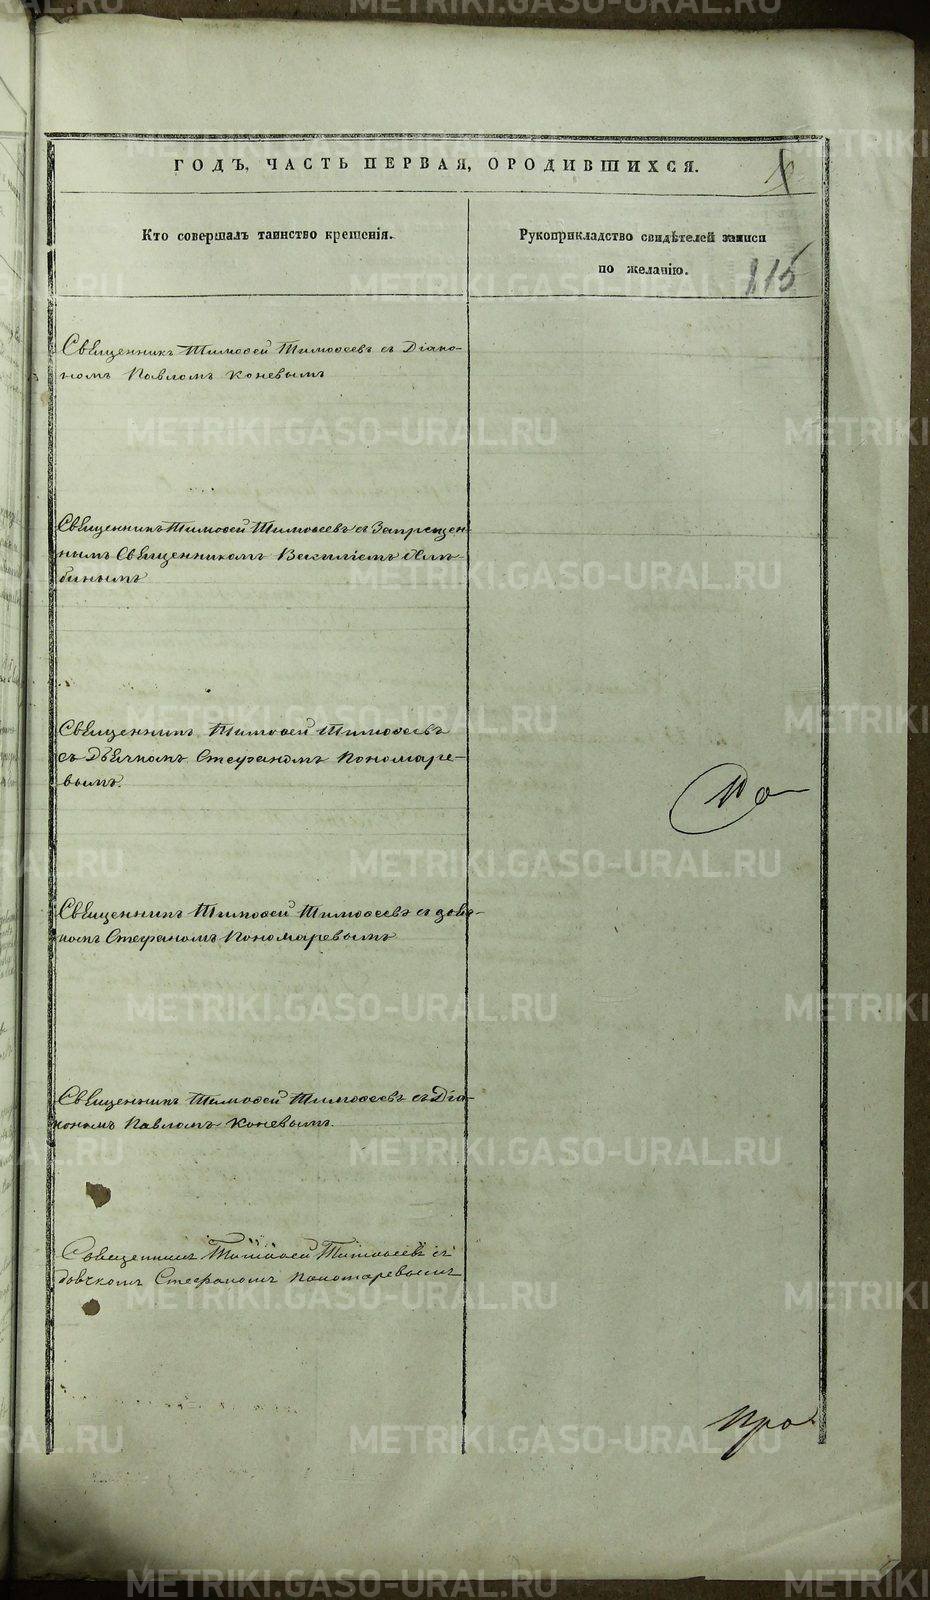 ГОДЪ, ЧАСТЬ ПЕРВАЯ, О РОДИВШИХСЯ.
Кто совершалъ таинство крещенія.
Рукоприкладство свидѣтелей записи
по желанію.
115
Священникъ Тимоѳей Тимоѳеевъ съ Діако-
номъ Павломъ Коневымъ
Священникъ Тимоѳей Тимоѳеевъ съ Запрещен-
нымъ Священникомъ Василіемъ
бинымъ
Священникъ Тимоѳей Тимоѳеевъ
съ Дьячкомъ Стефаномъ Пономаре-
вымъ.
Священникъ Тимоѳей Тимоѳеевъ съ дьяч-
комъ Стефаномъ Пономаревымъ
Священникъ Тимоѳей Тимоѳеевъ съ Діа-
кономъ Павломъ Коневымъ.
Священникъ Тимоѳей Тимоѳеевъ съ
дьячкомъ Стефаномъ Пономаревымъ
Про
METRIKI.GASO-URAL.RU